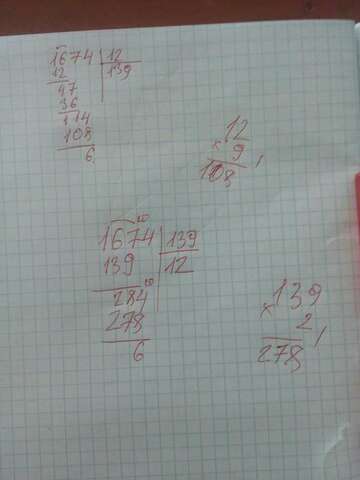 1674 | 12
12 | 139
47
36
114
108
6
12
× 9
108
10
1674 | 139
139 | 12
10
284
278
6
139
× 2
278